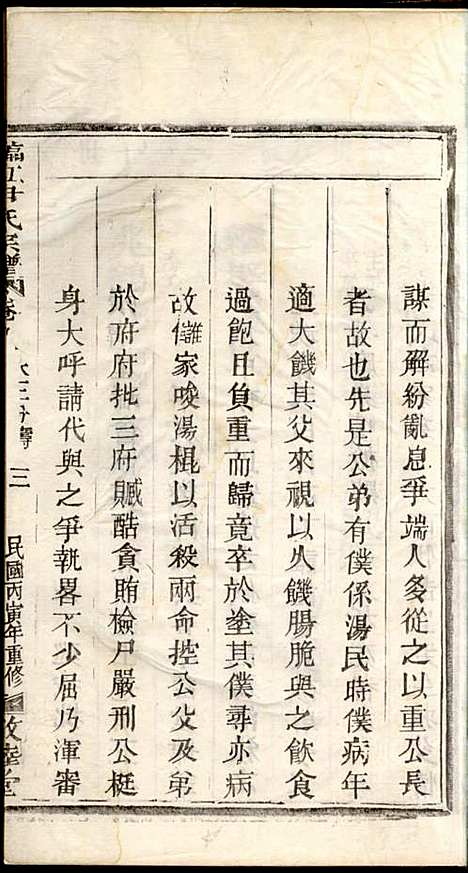 謀而解紛亂息爭端人多從之以重公長
者故也先是公弟有僕係湯民時僕病年
適大饑其父來視以久饑腸脆與之飲食
過飽且負重而歸竟卒於塗其僕尋亦病
故讎家唆湯棍以活殺兩命控公父及弟
於府府批三府贓酷貪賄檢尸嚴刑公挺
身大呼請代與之爭執畧不少屈乃渾審
尹氏宗譜 卷
三
民國丙寅年重修
敦睦堂